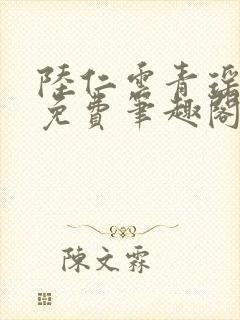 陸仁雲青瑶
免費筆趣閣
陳文霖